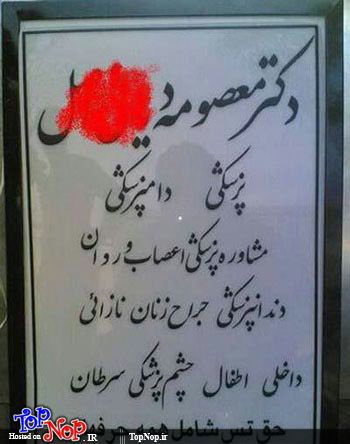 دکتر معصومه
پزشکی دامپزشکی
مشاوره پزشکی اعصاب و روان
دندانپزشکی جراح زنان نازائی
داخلی اطفال چشم پزشکی سرطان
TOP NOP .IR
Hosted on TopNop.ir